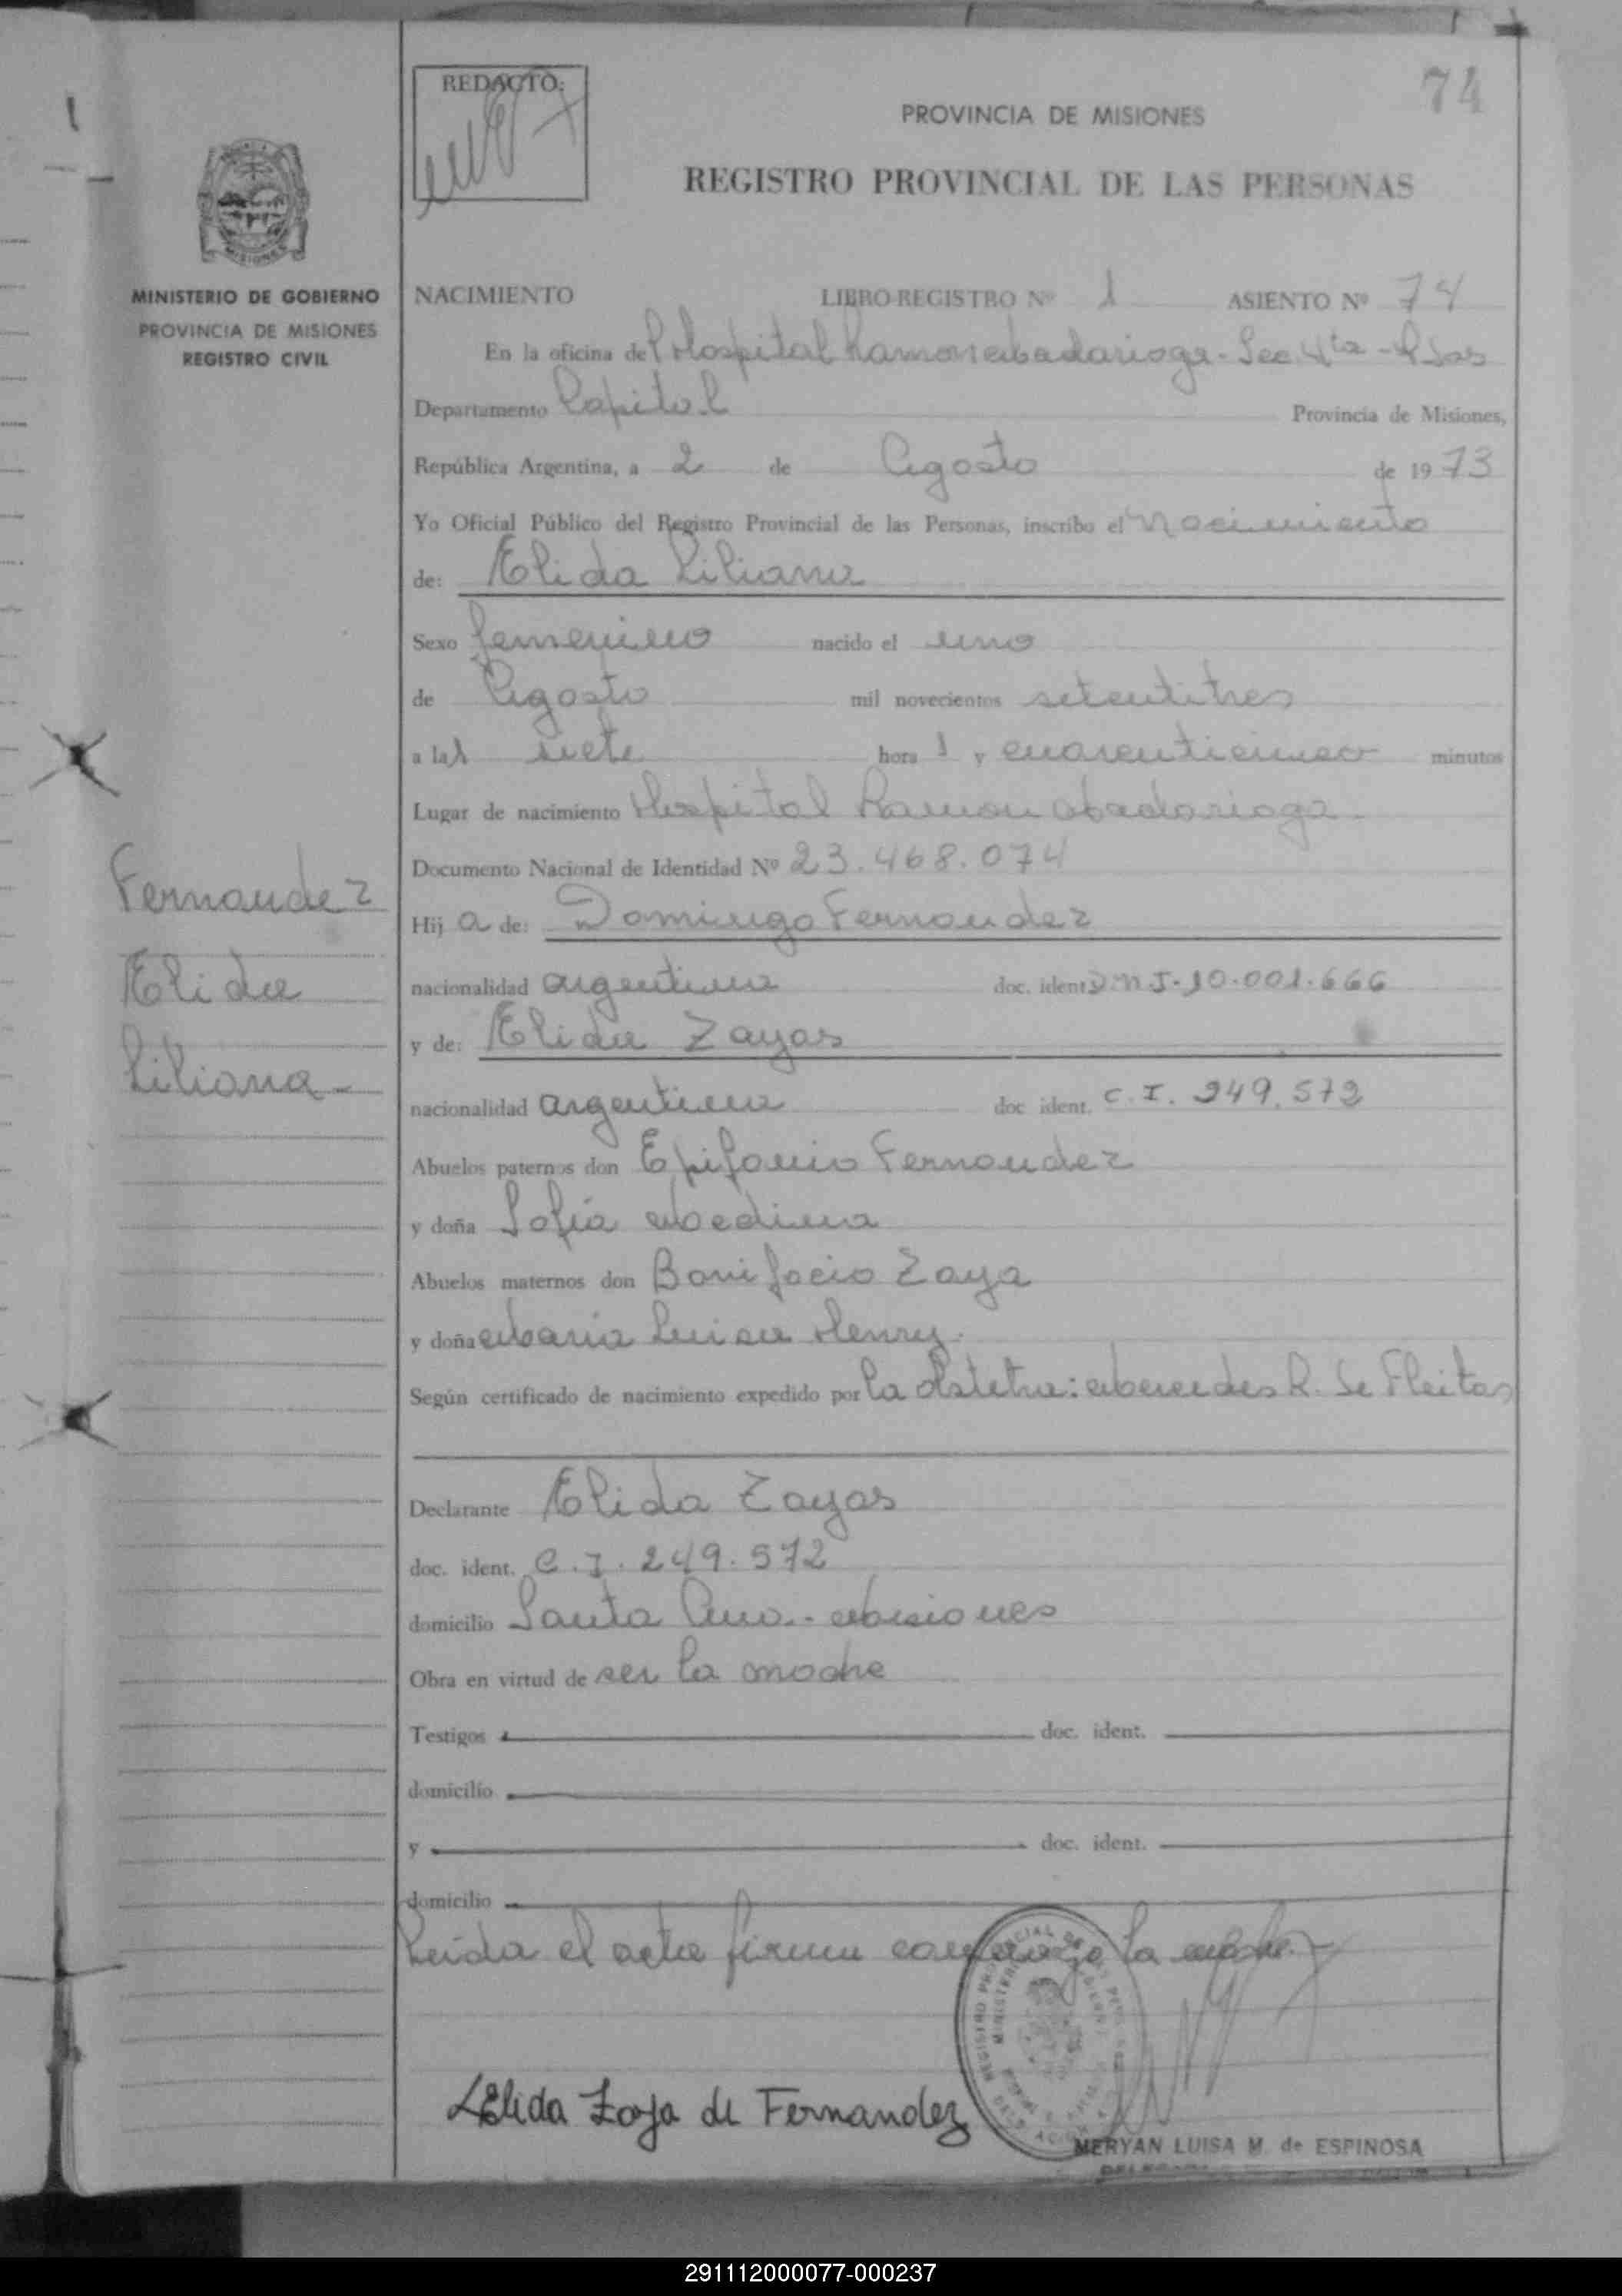 74
REDACTO:
PROVINCIA DE MISIONES
REGISTRO PROVINCIAL DE LAS PERSONAS
MISIONES
MINISTERIO DE GOBIERNO
PROVINCIA DE MISIONES
REGISTRO CIVIL
NACIMIENTO LIBRO-REGISTRO Nº 1 ASIENTO Nº 74
En la oficina del Hospital Ramon Madariaga - Sec 4ta - Psas
Departamento Capital Provincia de Misiones,
República Argentina, a 2 de Agosto de 1973
Yo Oficial Público del Registro Provincial de las Personas, inscribo el Nacimiento
de: Elida Liliana
Sexo femenino nacido el uno
de Agosto mil novecientos setentitres
a las siete hora s y cuarenticinco minutos
Lugar de nacimiento Hospital Ramon Madariaga.
Documento Nacional de Identidad Nº 23.468.074
Fernandez
Elida
Liliana-
Hij a de: Domingo Fernandez
nacionalidad argentina doc. ident D.N.I-10.001.666
y de: Elida Zayas
nacionalidad argentina doc ident. C.I. 249.572
Abuelos paternos don Epifanio Fernandez
y doña Sofia Medina
Abuelos maternos don Bonifacio Zaya
y doña Maria Luisa Henry.
Según certificado de nacimiento expedido por la Obstetra: Mercedes R. De Fleitas
Declarante Elida Zayas
doc. ident. C.I. 249.572
domicilio Santa Ana.- Misiones
Obra en virtud de ser la madre
Testigos doc. ident.
domicilio
y doc. ident.
domicilio
Leida el acta firma conmigo la madre.
Elida Zaya de Fernandez
MERYAN LUISA M. de ESPINOSA
291112000077-000237